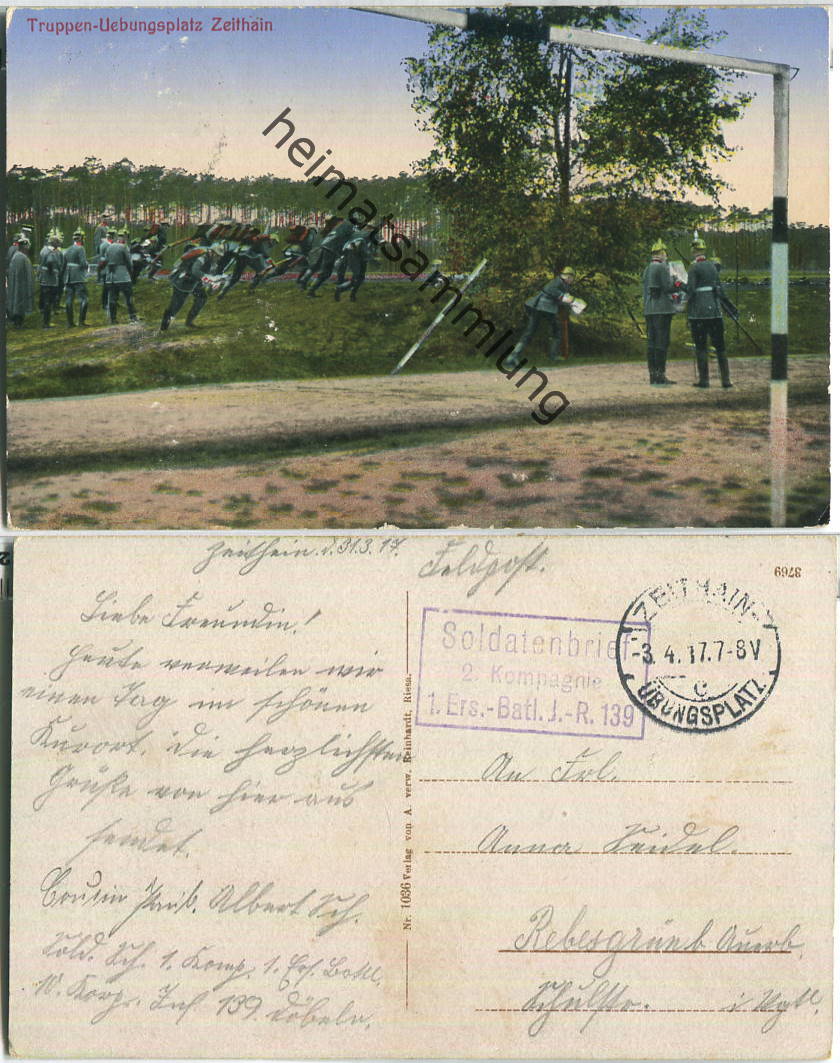 Truppen-Uebungsplatz Zeithain
heimatsammlung
Zeithain. d. 31.3.17.
Feldpost.
3769
Liebe Freundin!
Heute verweilen wir
einen Tag im schönen
Kurort. Die herzlichsten
Grüße von hier aus
sendet.
Cousin Paul. Albert Sch.
Sold. Sch. 1. Komp. 1. Ers. Batl.
10. Korpr. Inf. 139. Döbeln.
Nr. 1036 Verlag von A. verw. Reinhardt, Riesa.
Soldatenbrief
2. Kompagnie
1. Ers.-Batl. J.-R. 139
ZEITHAIN
-3.4.17.7-8V
c
ÜBUNGSPLATZ
An Frl.
Anna Seidel.
Rebesgrün b Auerb.
Schulstr. i Vgtl.